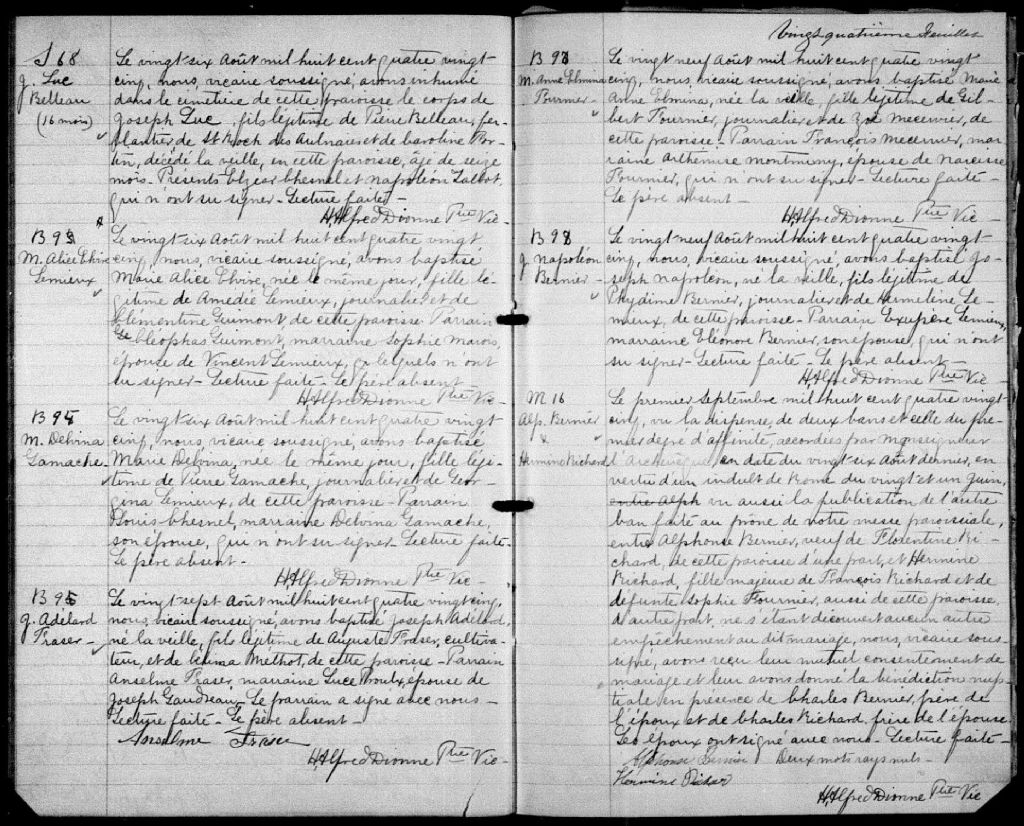 S 68
J. Luc
Belleau
(16 mois)
Le vingt-six Août mil huit cent quatre vingt
cinq, nous, vicaire soussigné, avons inhumé
dans le cimetière de cette paroisse le corps de
Joseph Luc, fils légitime de Pierre Belleau, fer-
blantier de St Roch des Aulnaies et de Caroline For-
tin, décédé la veille, en cette paroisse, âgé de seize
mois - Présents Elzéar Chesnel et Napoléon Talbot,
qui n'ont su signer - Lecture faite -
H, Alfred Dionne Ptre Vic -
B 93
M. Alice
Lemieux
Le vingt-six Août mil huit cent quatre vingt
cinq, nous, vicaire soussigné, avons baptisé
Marie Alice, née le même jour, fille lé-
gitime de Amédée Lemieux, journalier et de
Clémentine Guimont de cette paroisse. Parrain
Cléophas Guimont, marraine Sophie Marois,
épouse de Vincent Lemieux, lesquels n'ont
su signer - Lecture faite - Le père absent -
H, Alfred Dionne Ptre Vic -
B 95
M. Delvina
Gamache
Le vingt-six Août mil huit cent quatre vingt
cinq, nous, vicaire soussigné, avons baptisé
Marie Delvina, née le même jour, fille légi-
time de Pierre Gamache, journalier et de Geor-
gina Lemieux, de cette paroisse - Parrain
Louis Chesnel, marraine Delvina Gamache,
son épouse, qui n'ont su signer - Lecture faite -
Le père absent -
H, Alfred Dionne Ptre Vic -
B 96
J. Adélard
Fraser -
Le vingt-sept Août mil huit cent quatre vingt cinq,
nous, vicaire soussigné, avons baptisé Joseph Adélard,
né la veille, fils légitime de Auguste Fraser, cultiva-
teur, et de Méthot, de cette paroisse - Parrain
Anselme Fraser, marraine Luce Proulx, épouse de
Joseph Gaudreau - Le parrain a signé avec nous -
Lecture faite - Le père absent -
Anselme Fraser
H, Alfred Dionne Ptre Vic -
Vingt quatrième Feuillet
B 97
M. Anne Elmina
Fournier -
Le vingt neuf Août mil huit cent quatre vingt
cinq, nous, vicaire soussigné, avons baptisé Marie
Anne Elmina, née la veille, fille légitime de Gil-
bert Fournier, journalier et de Zoé Mecervier, de
cette paroisse - Parrain François Mecervier, mar
raine Arthémise Montminy, épouse de Narcisse
Fournier, qui n'ont su signer - Lecture faite -
Le père absent -
H, Alfred Dionne Ptre Vic -
B 98
J. Napoléon
Bernier -
Le vingt neuf Août mil huit cent quatre vingt-
cinq, nous, vicaire soussigné, avons baptisé Jo-
seph Napoléon, né la veille, fils légitime de
Phydime Bernier, journalier et de Herméline Le-
mieux, de cette paroisse - Parrain Exupère Lemieux,
marraine Eléonore Bernier, son épouse, qui n'ont
su signer - Lecture faite - Le père absent -
H, Alfred Dionne Ptre Vic -
M 16
Alp. Bernier
x
Hermine Richard
Le premier Septembre mil huit cent quatre vingt
cinq, vu la dispense, de deux bans et celle du pre-
mier degré d'affinité, accordées par Monseigneur
l'Archevêque, en date du vingt-six Août dernier, en
vertu d'un indult de Rome du vingt et un Juin,
entre Alph vu aussi la publication de l'autre
ban faite au prône de notre messe paroissiale,
entre Alphonse Bernier, veuf de Florentine Ri-
chard, de cette paroisse d'une part, et Hermine
Richard, fille majeure de François Richard et de
défunte Sophie Fournier, aussi de cette paroisse,
d'autre part, ne s'étant découvert aucun autre
empêchement au dit mariage, nous, vicaire sous-
signé, avons reçu leur mutuel consentement de
mariage et leur avons donné la bénédiction nup-
tiale en présence de Charles Bernier, père de
l'époux et de Charles Richard, frère de l'épouse.
Les époux ont signé avec nous - Lecture faite -
Alphonse Bernier Deux mots rayés nuls -
Hermine Richar
H, Alfred Dionne Ptre Vic